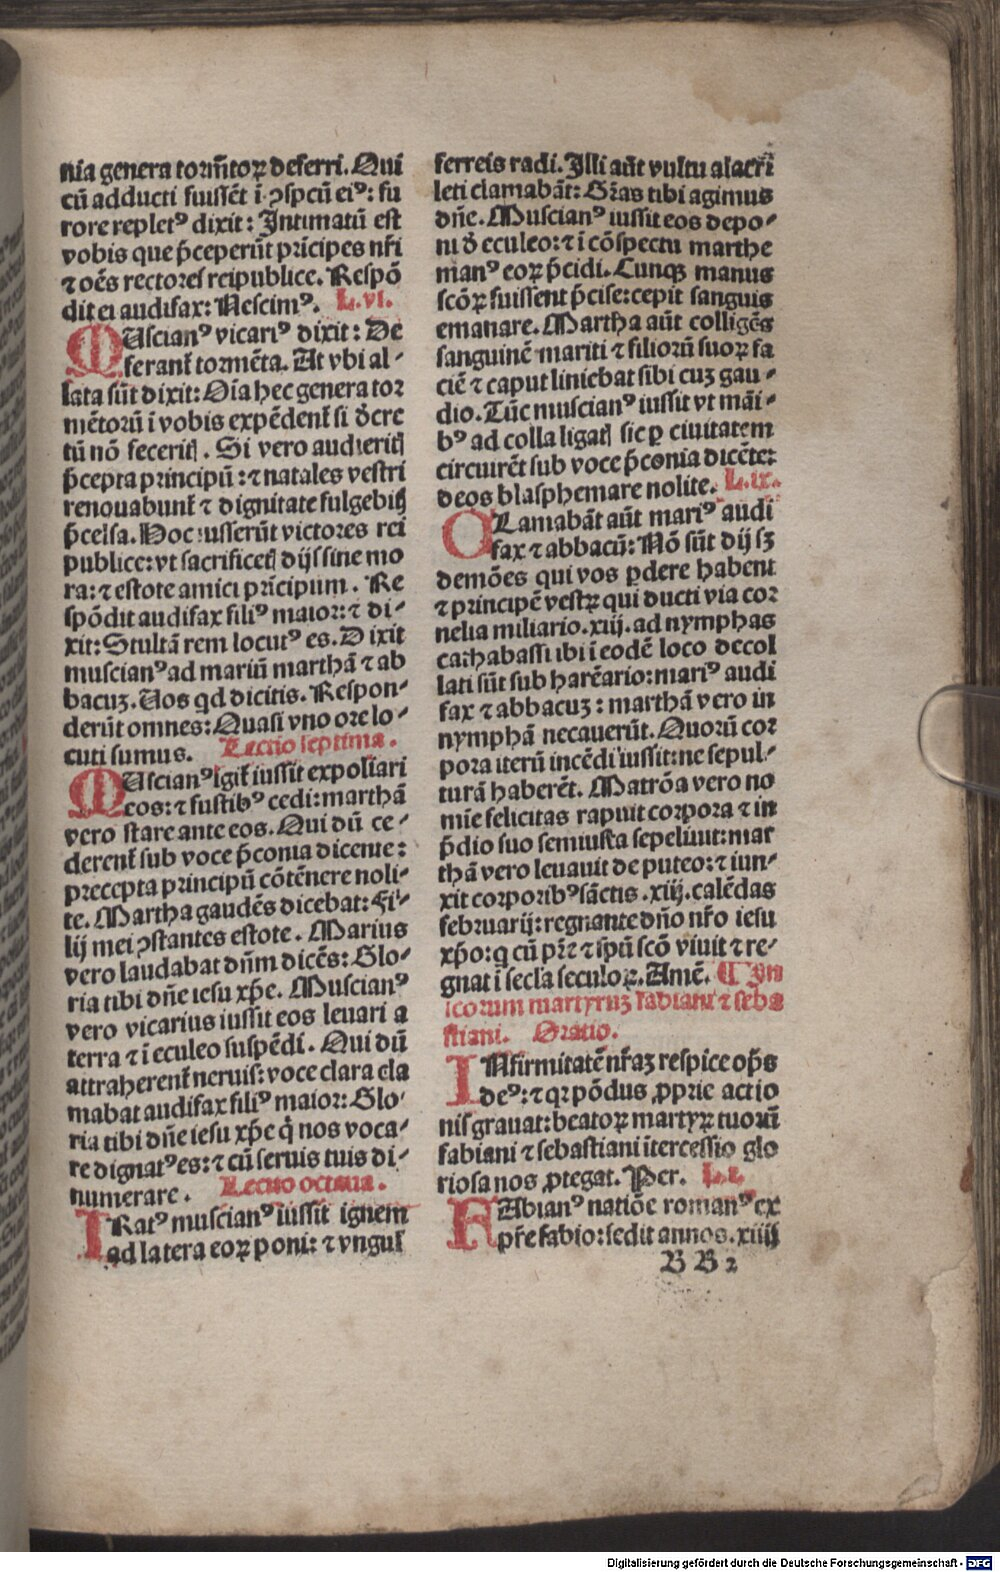 nia genera torm̄toꝝ deferri. Qui
cū adducti fuissēt ī ꝯspcū eiꝰ: fu
rore repletꝰ dixit: Intimatū est
vobis que p̄ceperūt prīcipes nr̄i
⁊ oēs rectores reipublice. Respō
dit ei audifax: Nescimꝰ. L. vi.
MUscianꝰ vicariꝰ dixit: De
ferant̄ tormēta. At vbi al-
lata sūt dixit: Oīa hec genera tor
mētorū ī vobis expēdent̄ si d̄cre
tū nō feceritꝭ. Si vero audieritꝭ
p̄cepta principū: ⁊ natales vestri
renouabunt̄ ⁊ dignitate fulgebitꝭ
p̄celsa. Hoc iusserūt victores rei
publice: vt sacrificetꝭ dijs sine mo
ra: ⁊ estote amici prīcipum. Re
spōdit audifax filiꝰ maior: ⁊ di-
xit: Stultā rem locutꝰ es. Dixit
muscianꝰ ad mariū marthā ⁊ ab
bacuꝫ. Uos qd dicitis. Respon-
derūt omnes: Quasi vno ore lo-
cuti sumus. Lectio septima.
MUscianꝰ igit̄ iussit expoliari
eos: ⁊ fustibꝰ cedi: marthā
vero stare ante eos. Qui dū ce-
derent̄ sub voce p̄conia dicente:
precepta principū cōtēnere noli-
te. Martha gaudēs dicebat: Fi-
lij mei ꝯstantes estote. Marius
vero laudabat dn̄m dicēs: Glo-
ria tibi dn̄e iesu xp̄e. Muscianꝰ
vero vicarius iussit eos leuari a
terra ⁊ ī eculeo suspēdi. Qui dū
attraherent̄ neruis: voce clara cla
mabat audifax filiꝰ maior: Glo-
ria tibi dn̄e iesu xp̄e q̄ nos voca-
re dignatꝰ es: ⁊ cū seruis tuis di-
numerare. Lectio octaua.
IRatꝰ muscianꝰ iussit ignem
ad latera eoꝝ poni: ⁊ vngul̄
ferreis radi. Illi aūt vultu alacri
leti clamabāt: Gr̄as tibi agimus
dn̄e. Muscianꝰ iussit eos depo-
ni d̄ eculeo: ⁊ ī cōspectu marthe
manꝰ eoꝝ p̄cidi. Cunqꝫ manus
scōꝝ fuissent p̄cise: cepit sanguis
emanare. Martha aūt colligēs
sanguinē mariti ⁊ filiorū suoꝝ fa
ciē ⁊ caput liniebat sibi cuꝫ gau-
dio. Tūc muscianꝰ iussit vt māi-
bꝰ ad colla ligatꝭ sic ꝑ ciuitatem
circuirēt sub voce p̄conia dicēte:
deos blasphemare nolite. L. ix.
CLamabāt aūt mariꝰ audi
fax ⁊ abbacū: Nō sūt dij sꝫ
demōes qui vos ꝑdere habent
⁊ principē vestꝝ qui ducti via cor
nelia miliario. xiij. ad nymphas
cathabassi ibi ī eodē loco decol
lati sūt sub harēario: mariꝰ audi
fax ⁊ abbacuꝫ: marthā vero in
nymphā necauerūt. Quorū cor
pora iterū incēdi iussit: ne sepul-
turā haberēt. Matrōa vero no
mīe felicitas rapuit corpora ⁊ in
p̄dio suo semiusta sepeliuit: mar
thā vero leuauit de puteo: ⁊ iun-
xit corporibꝰ sāctis. xiij. calēdas
februarij: regnante dn̄o nr̄o iesu
xp̄o: q̄ cū pr̄e ⁊ spū scō viuit ⁊ re-
gnat ī secl̄a seculoꝝ. Amē. ¶ Sm̄
ctorum martyruꝫ fabiani ⁊ seba
stiani. Oratio.
INfirmitatē nr̄aꝫ respice op̄s
deꝰ: ⁊ qꝛ pōdus ꝓprie actio
nis grauat: beatoꝝ martyꝝ tuorū
fabiani ⁊ sebastiani ītercessio glo
riosa nos ꝓtegat. Per. L. i.
FAbianꝰ natiōe romanꝰ ex
pr̄e fabio: sedit annos. xiiij
B B 2
Digitalisierung gefördert durch die Deutsche Forschungsgemeinschaft - DFG